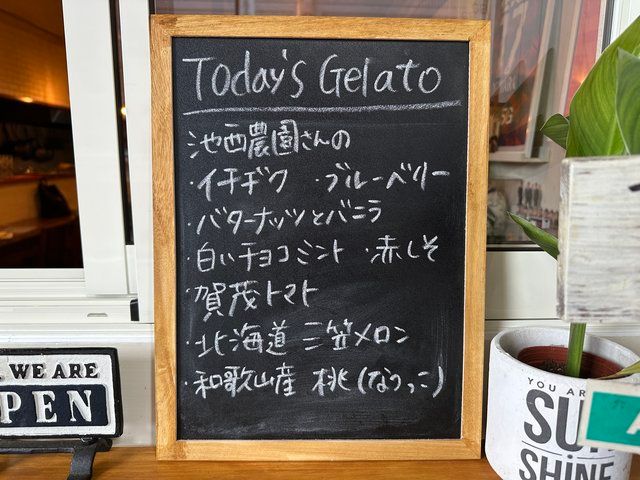 Today's Gelato
池西農園さんの
・イチヂク ・ブルーベリー
・バターナッツとバニラ
・白いチョコミント ・赤しそ
・賀茂トマト
・北海道 三笠メロン
・和歌山産 桃(なりっこ)
WE ARE
PEN
YOU AR
SUN
SHINE